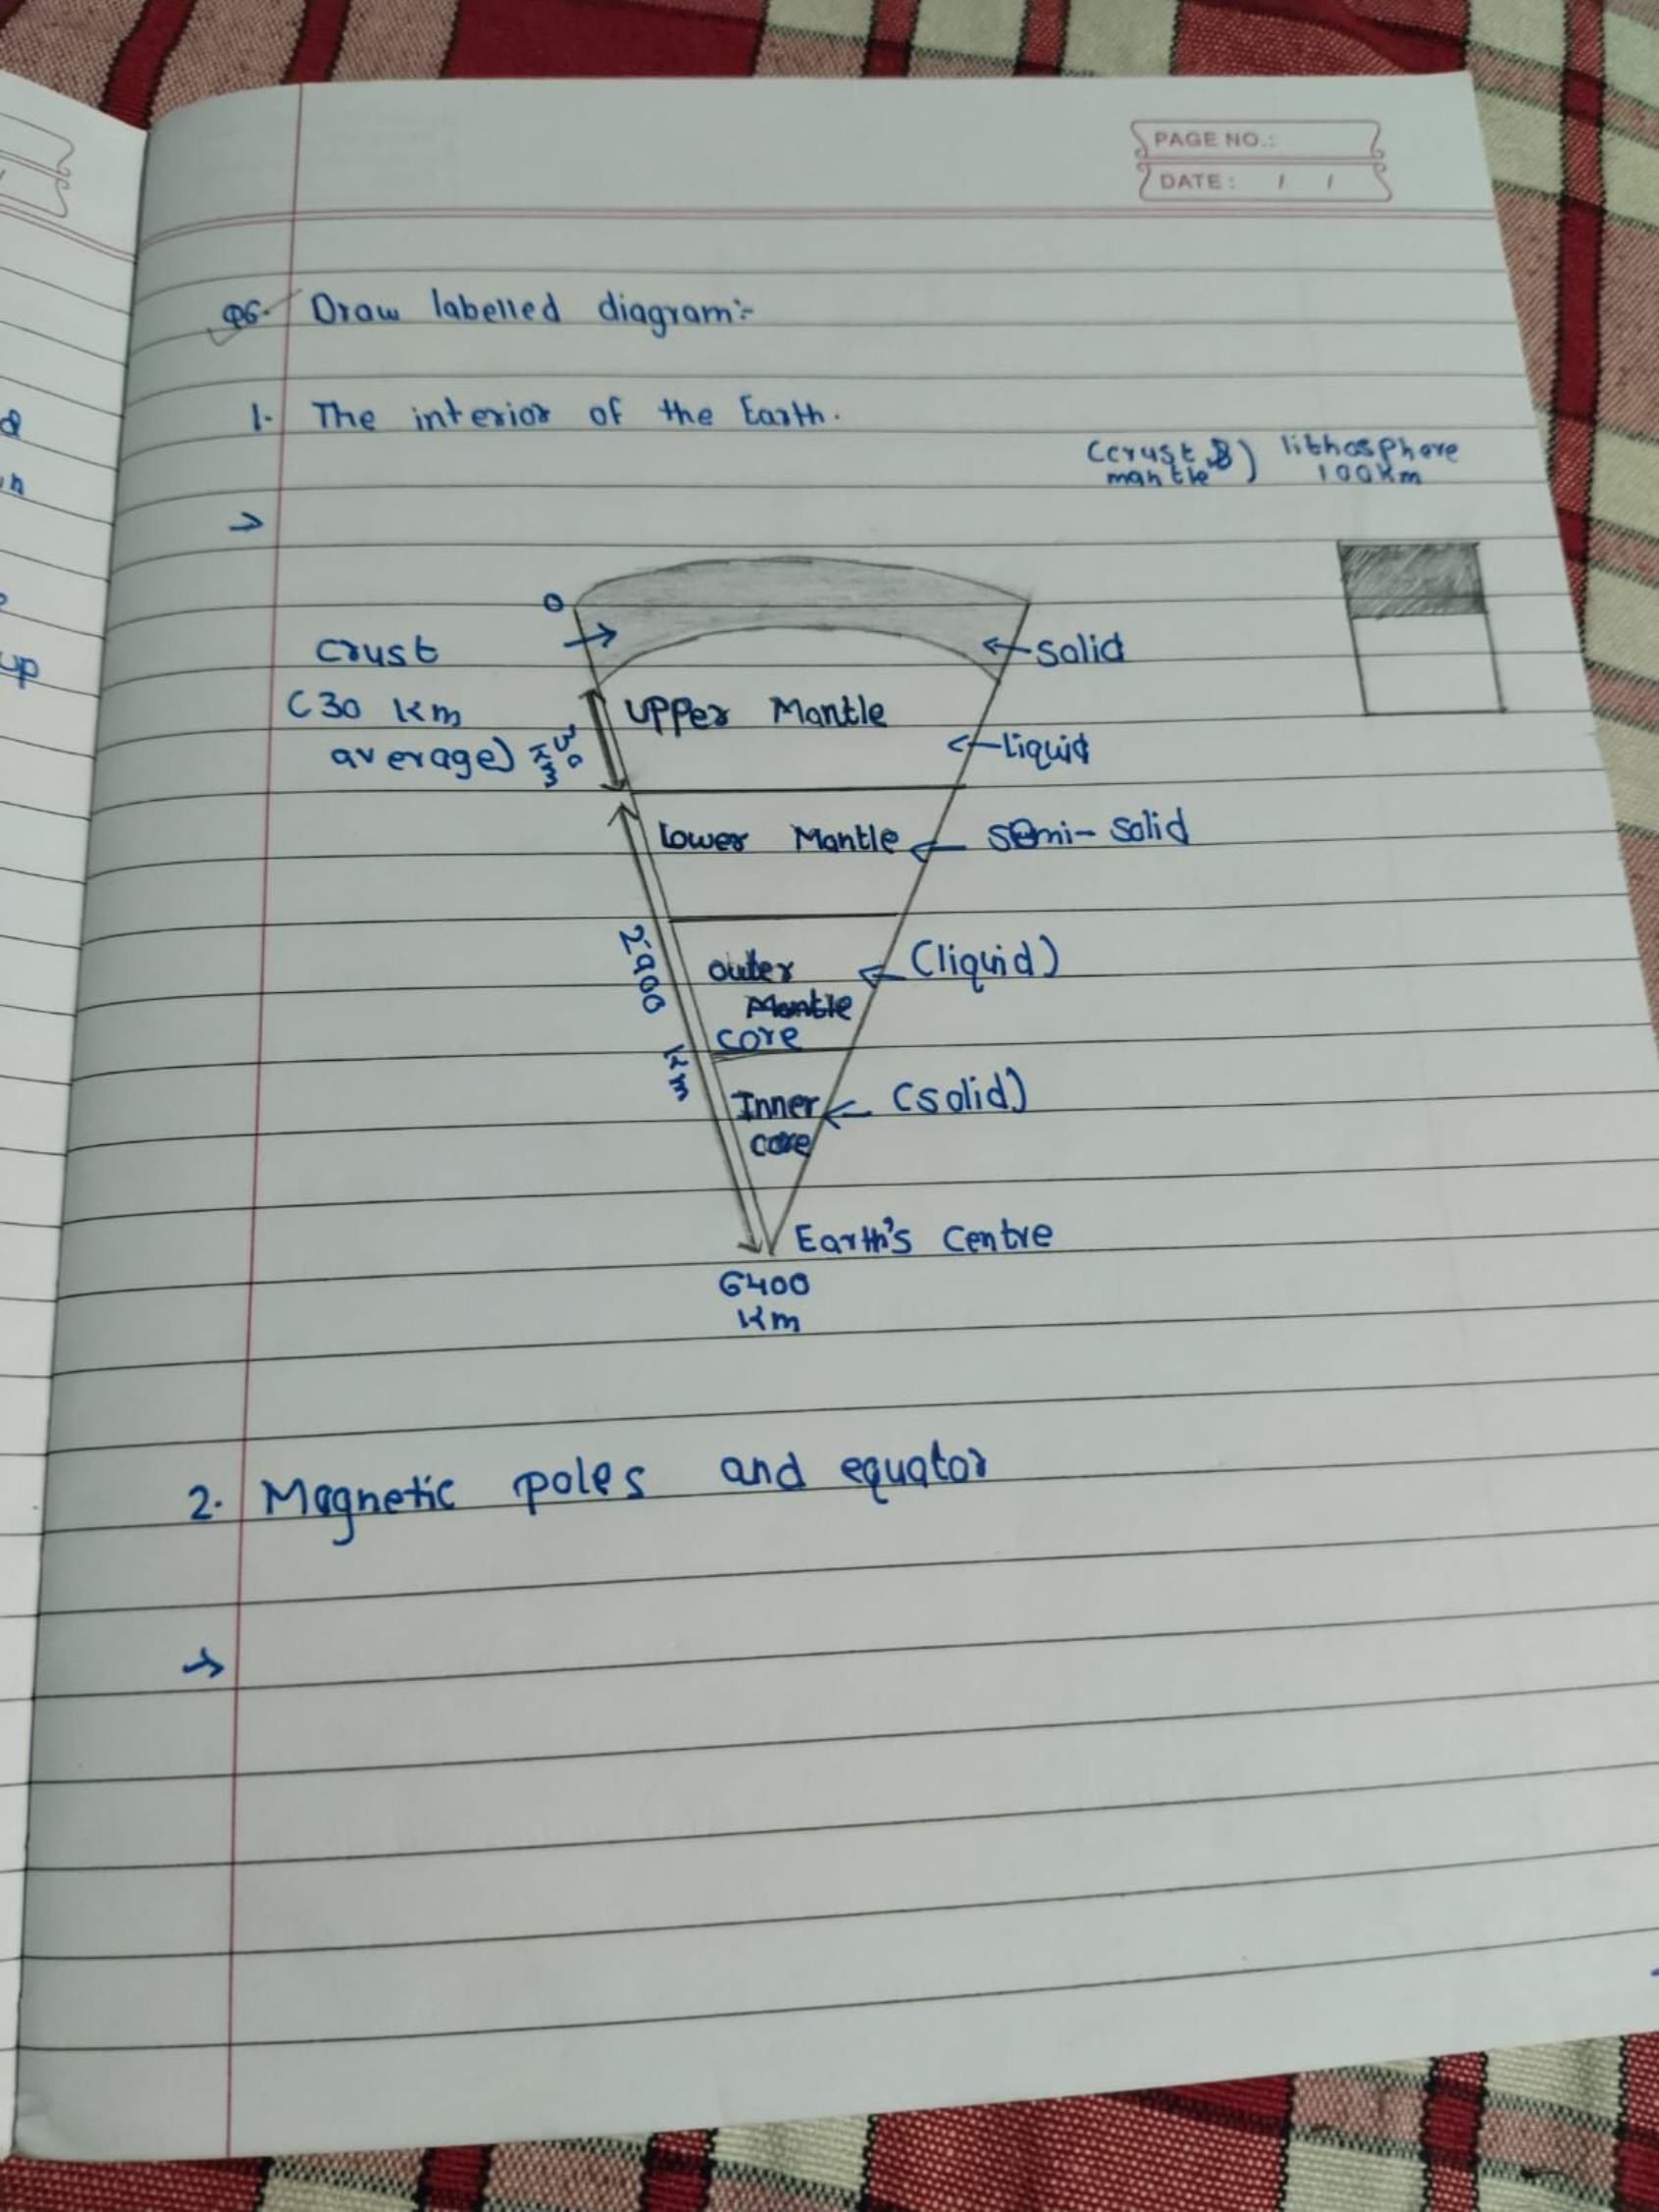 PAGE NO.:
DATE: / /
Q6. Draw labelled diagram:-
1. The interior of the Earth.
(crust & mantle) lithosphere 100Km
0
crust
(30 Km average)
30 Km
Solid
Upper Mantle
liquid
lower Mantle
semi-solid
2900 Km
outer
Mantle
core
(liquid)
Inner
core
(solid)
Earth's Centre
6400
Km
2. Magnetic poles and equator
d
n
up